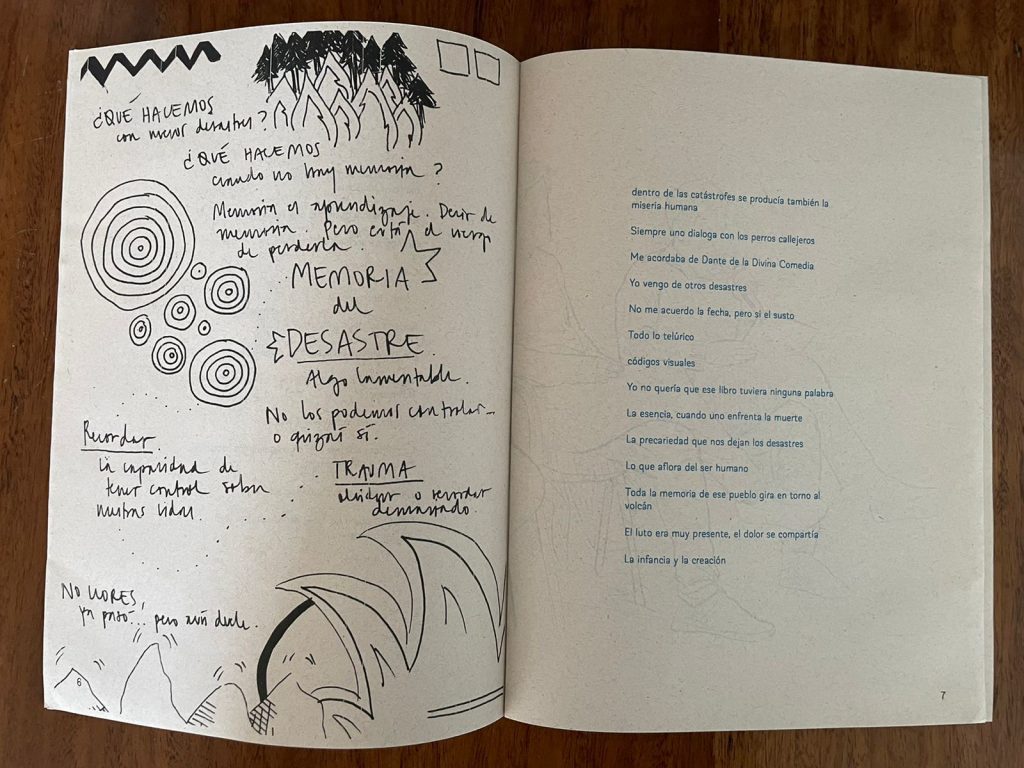 ¿QUÉ HACEMOS
con desastres?
¿QUÉ HACEMOS
cuando no hay memoria?
Memoria es aprendizaje. Decir de
memoria. Pero está el riesgo
de perderla.
MEMORIA
del
DESASTRE
Algo lamentable.
No los podemos controlar...
o quizás sí.
Recordar
La capacidad de
tener control sobre
nuestras vidas.
TRAUMA
olvidar o recordar
demasiado.
NO LLORES,
ya pasó... pero aún duele.
6
dentro de las catástrofes se producía también la
miseria humana
Siempre uno dialoga con los perros callejeros
Me acordaba de Dante de la Divina Comedia
Yo vengo de otros desastres
No me acuerdo la fecha, pero si el susto
Todo lo telúrico
códigos visuales
Yo no quería que ese libro tuviera ninguna palabra
La esencia, cuando uno enfrenta la muerte
La precariedad que nos dejan los desastres
Lo que aflora del ser humano
Toda la memoria de ese pueblo gira en torno al
volcán
El luto era muy presente, el dolor se compartía
La infancia y la creación
7